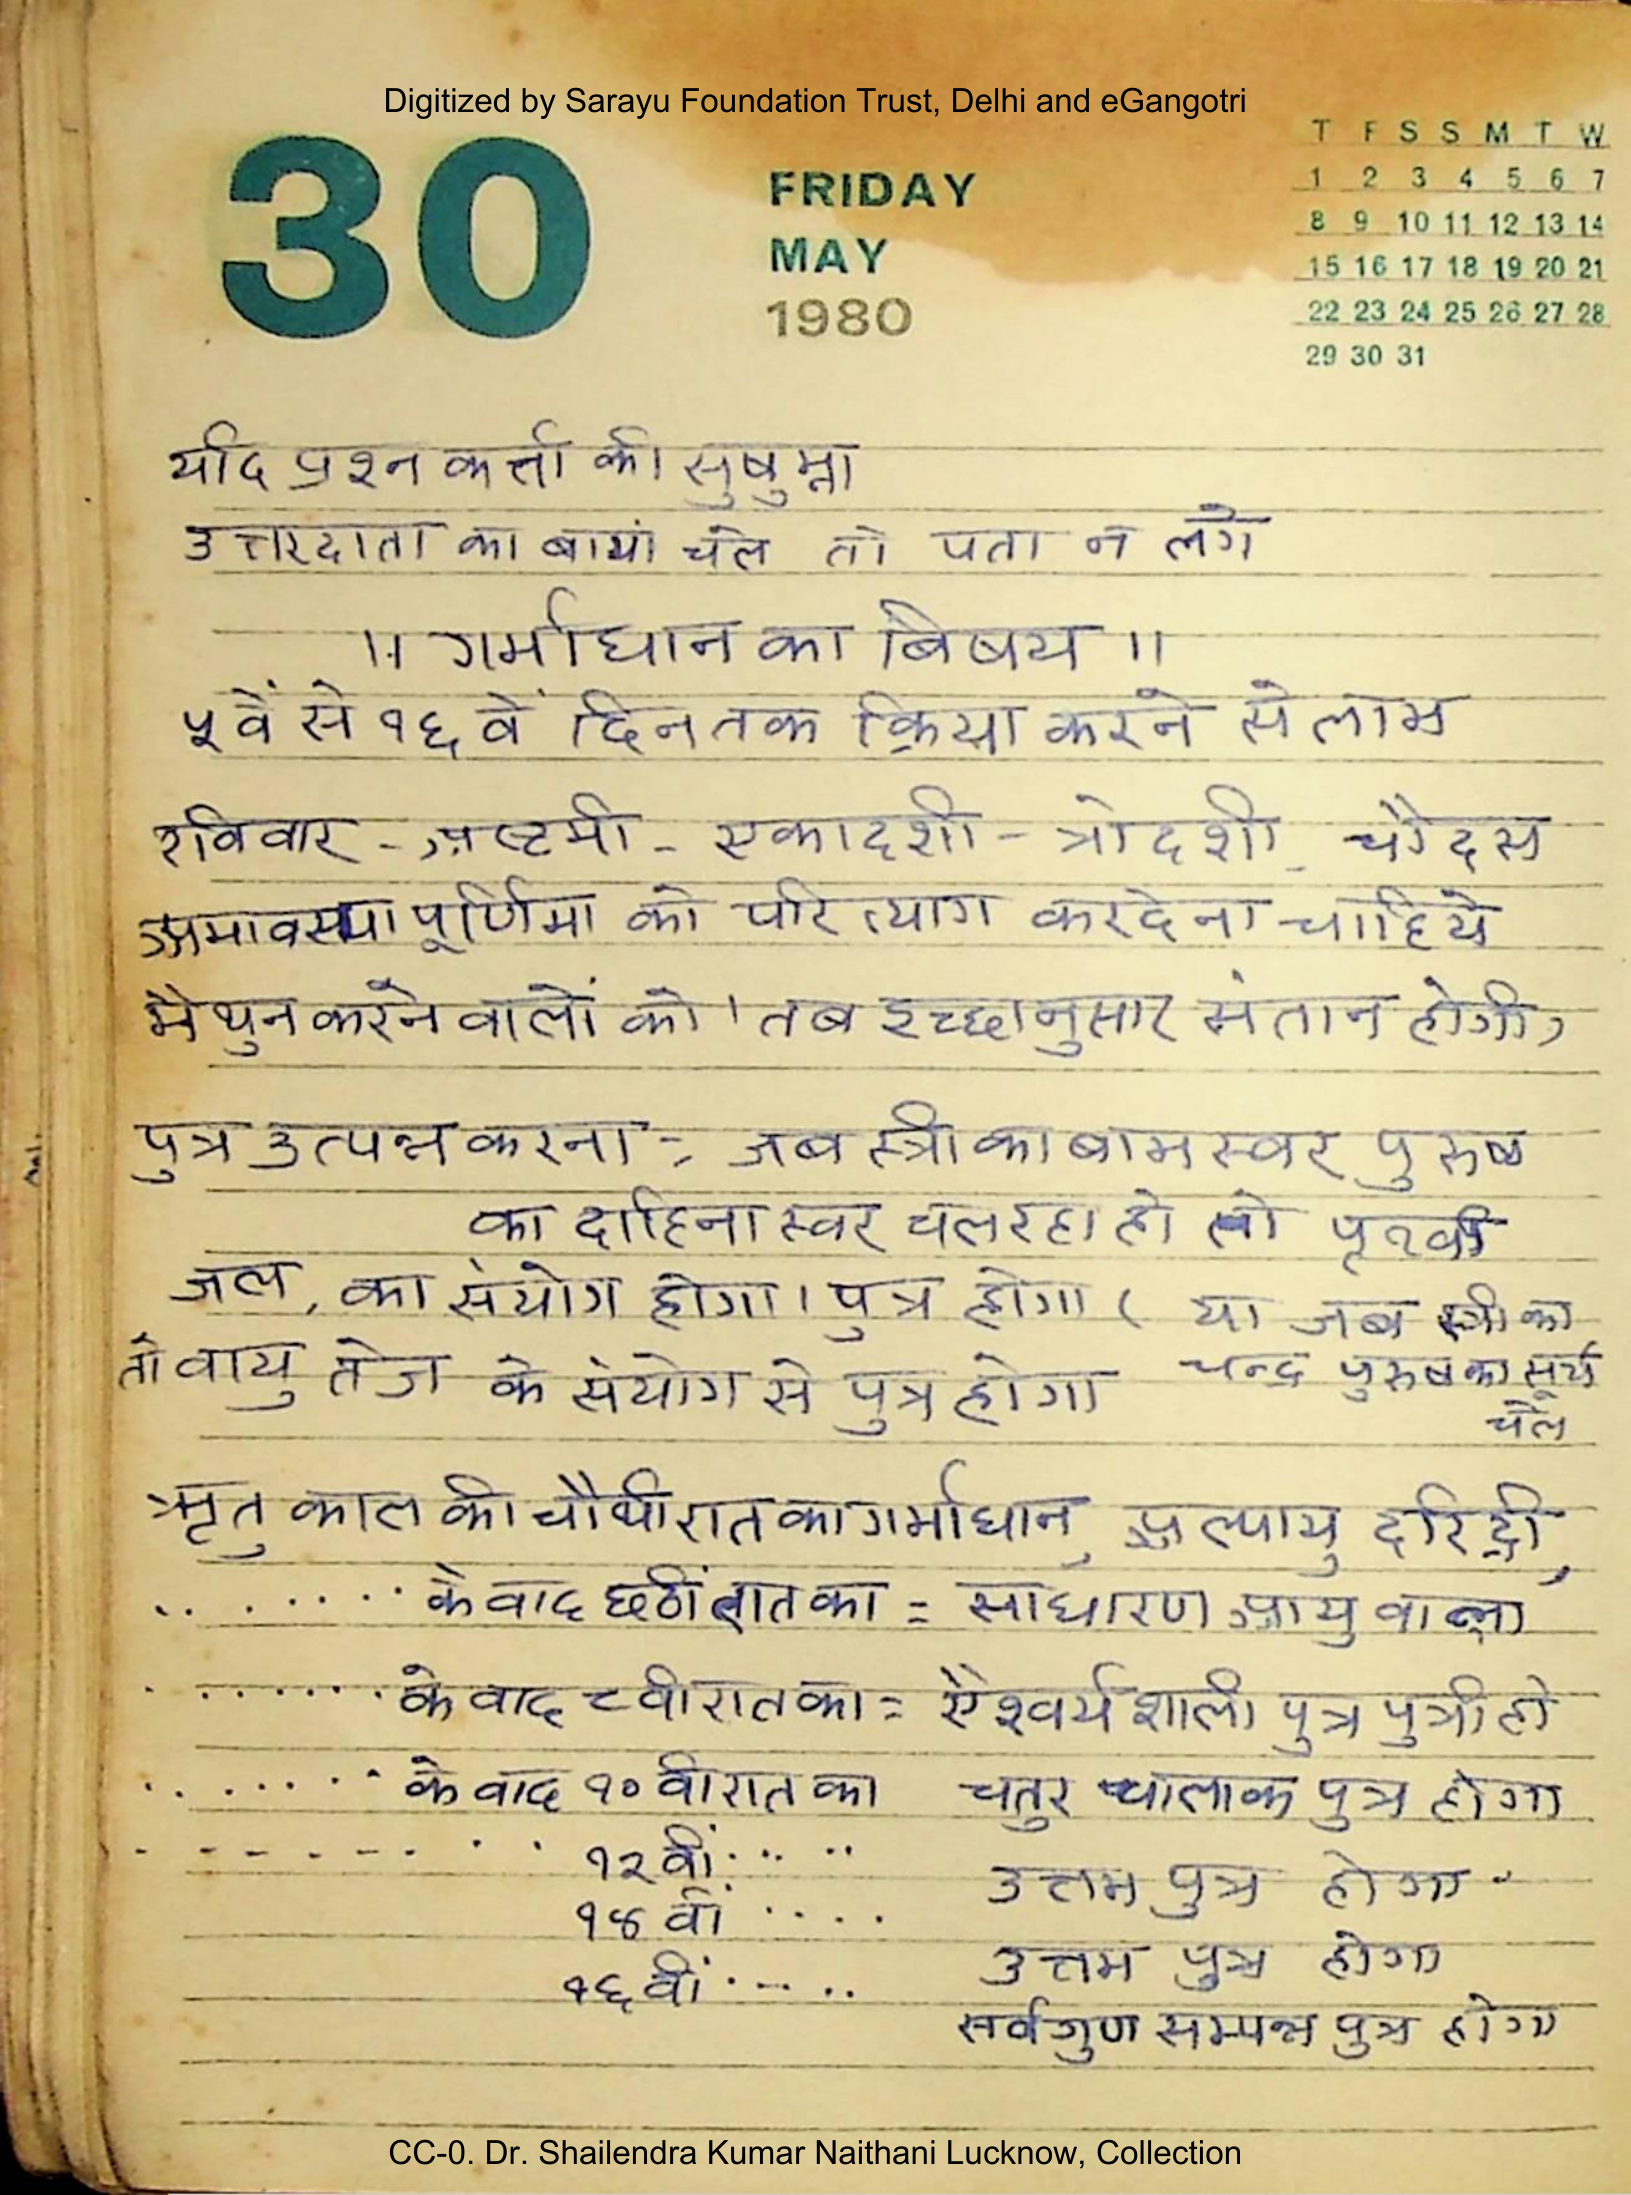 Digitized by Sarayu Foundation Trust, Delhi and eGangotri
30
FRIDAY
MAY
1980
T F S S M T W
1 2 3 4 5 6 7
8 9 10 11 12 13 14
15 16 17 18 19 20 21
22 23 24 25 26 27 28
29 30 31
यदि प्रश्न कर्त्ता की सुषुम्ना
उत्तरदाता का बायां चले तो पता न लगे
।। गर्भाधान का बिषय ।।
५वें से १६ वें दिन तक क्रिया करने से लाभ
रविवार - अष्टमी - एकादशी - त्रोदशी - चौदस
अमावस्या पूर्णिमा को परित्याग कर देना चाहिये
मैथुन करने वालों को । तब इच्छानुसार संतान होगी,
पुत्र उत्पन्न करना = जब स्त्री का बाम स्वर पुरुष
का दाहिना स्वर चल रहा हो तो पृथ्वी
जल, का संयोग होगा । पुत्र होगा ( या जब स्त्री का
चन्द्र पुरुष का सूर्य
चले
तो वायु तेज के संयोग से पुत्र होगा
ऋतु काल की चौथी रात का गर्भाधान, अल्पायु दरिद्री,
........ के वाद छठीं रात का = साधारण आयु वाला
........ के वाद ८ वी रात का = ऐश्वर्य शाली पुत्र पुत्री हो
........ के वाद १० वी रात का चतुर चालाक पुत्र होगा
- - - - - - - . . १२ वीं . .. .. उत्तम पुत्र होगा
१४ वीं . . . . उत्तम पुत्र होगा
१६ वीं . - .. सर्वगुण सम्पन्न पुत्र होगा
CC-0. Dr. Shailendra Kumar Naithani Lucknow, Collection